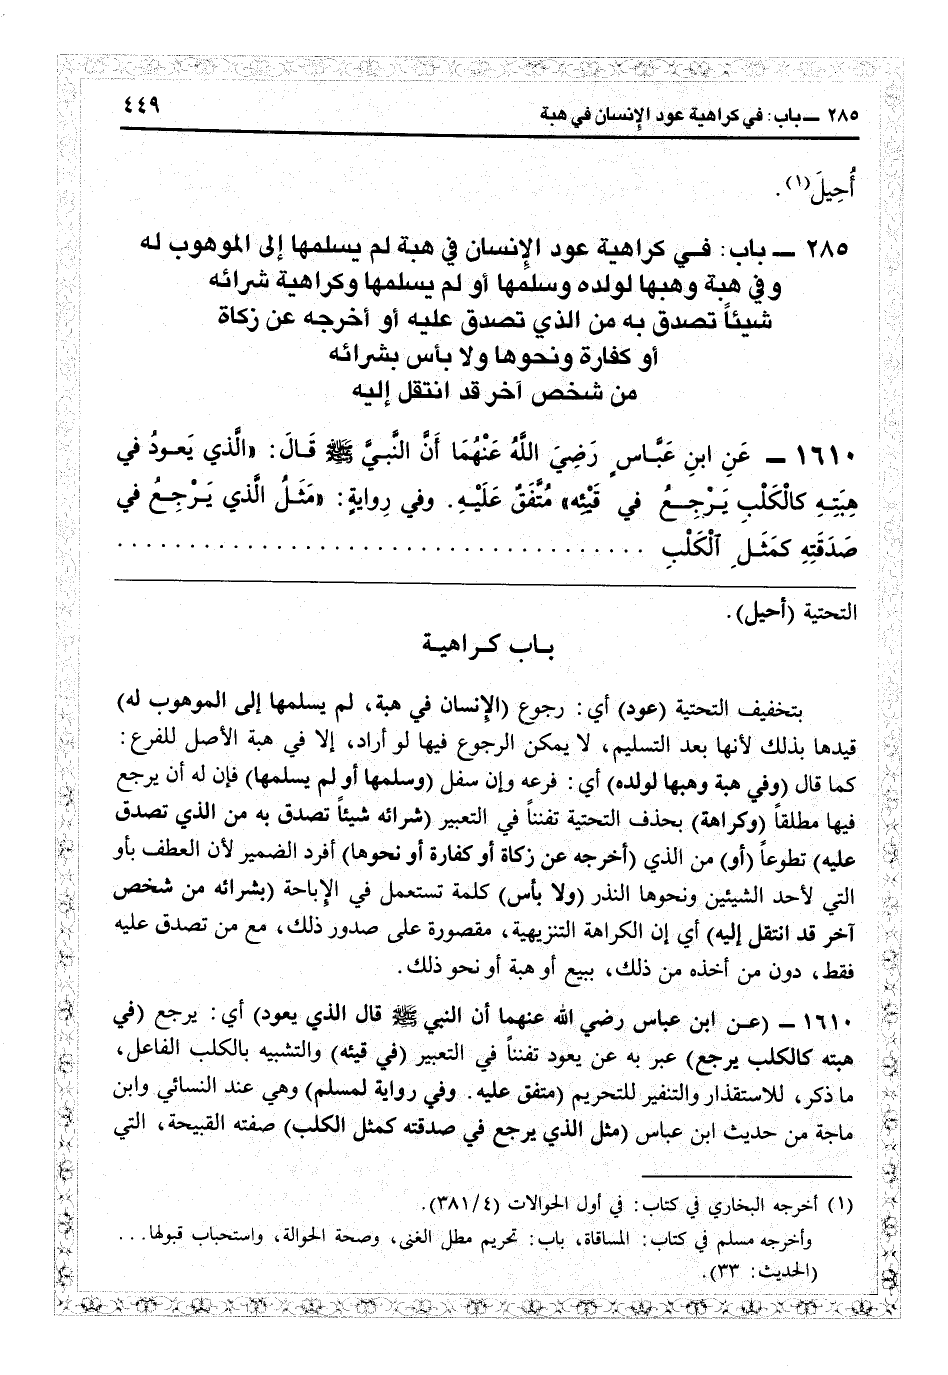 ٢٨٥ ــ باب: في كراهية عود الإنسان في هبة
٤٤٩
أُحِيلَ(١).
٢٨٥ ــ باب: في كراهية عود الإنسان في هبة لم يسلمها إلى الموهوب له
وفي هبة وهبها لولده وسلمها أو لم يسلمها وكراهية شرائه
شيئاً تصدق به من الذي تصدق عليه أو أخرجه عن زكاة
أو كفارة ونحوها ولا بأس بشرائه
من شخص آخر قد انتقل إليه
١٦١٠ ــ عَنِ ابنِ عَبَّاسٍ رَضِيَ اللَّهُ عَنْهُمَا أَنَّ النَّبِيَّ ﷺ قَالَ: «الَّذي يَعودُ في
هِبَتِهِ كالْكَلْبِ يَرْجِعُ في قَيْئِه» مُتَّفَقٌ عَلَيْهِ. وفي رِوايةٍ: «مَثَلُ الَّذي يَرْجِعُ في
صَدَقَتِهِ كمَثَلِ ٱلْكَلْبِ ......................................
التحتية (أحيل).
باب كراهية
بتخفيف التحتية (عود) أي: رجوع (الإنسان في هبة، لم يسلمها إلى الموهوب له)
قيدها بذلك لأنها بعد التسليم، لا يمكن الرجوع فيها لو أراد، إلا في هبة الأصل للفرع:
كما قال (وفي هبة وهبها لولده) أي: فرعه وإن سفل (وسلمها أو لم يسلمها) فإن له أن يرجع
فيها مطلقاً (وكراهة) بحذف التحتية تفنناً في التعبير (شرائه شيئاً تصدق به من الذي تصدق
عليه) تطوعاً (أو) من الذي (أخرجه عن زكاة أو كفارة أو نحوها) أفرد الضمير لأن العطف بأو
التي لأحد الشيئين ونحوها النذر (ولا بأس) كلمة تستعمل في الإباحة (بشرائه من شخص
آخر قد انتقل إليه) أي إن الكراهة التنزيهية، مقصورة على صدور ذلك، مع من تصدق عليه
فقط، دون من أخذه من ذلك، ببيع أو هبة أو نحو ذلك.
١٦١٠ ــ (عن ابن عباس رضي الله عنهما أن النبي ﷺ قال الذي يعود) أي: يرجع (في
هبته كالكلب يرجع) عبر به عن يعود تفنناً في التعبير (في قيئه) والتشبيه بالكلب الفاعل،
ما ذكر، للاستقذار والتنفير للتحريم (متفق عليه. وفي رواية لمسلم) وهي عند النسائي وابن
ماجة من حديث ابن عباس (مثل الذي يرجع في صدقته كمثل الكلب) صفته القبيحة، التي
(١) أخرجه البخاري في كتاب: في أول الحوالات (٣٨١/٤).
وأخرجه مسلم في كتاب: المساقاة، باب: تحريم مطل الغنى، وصحة الحوالة، واستحباب قبولها...
(الحديث: ٣٣).